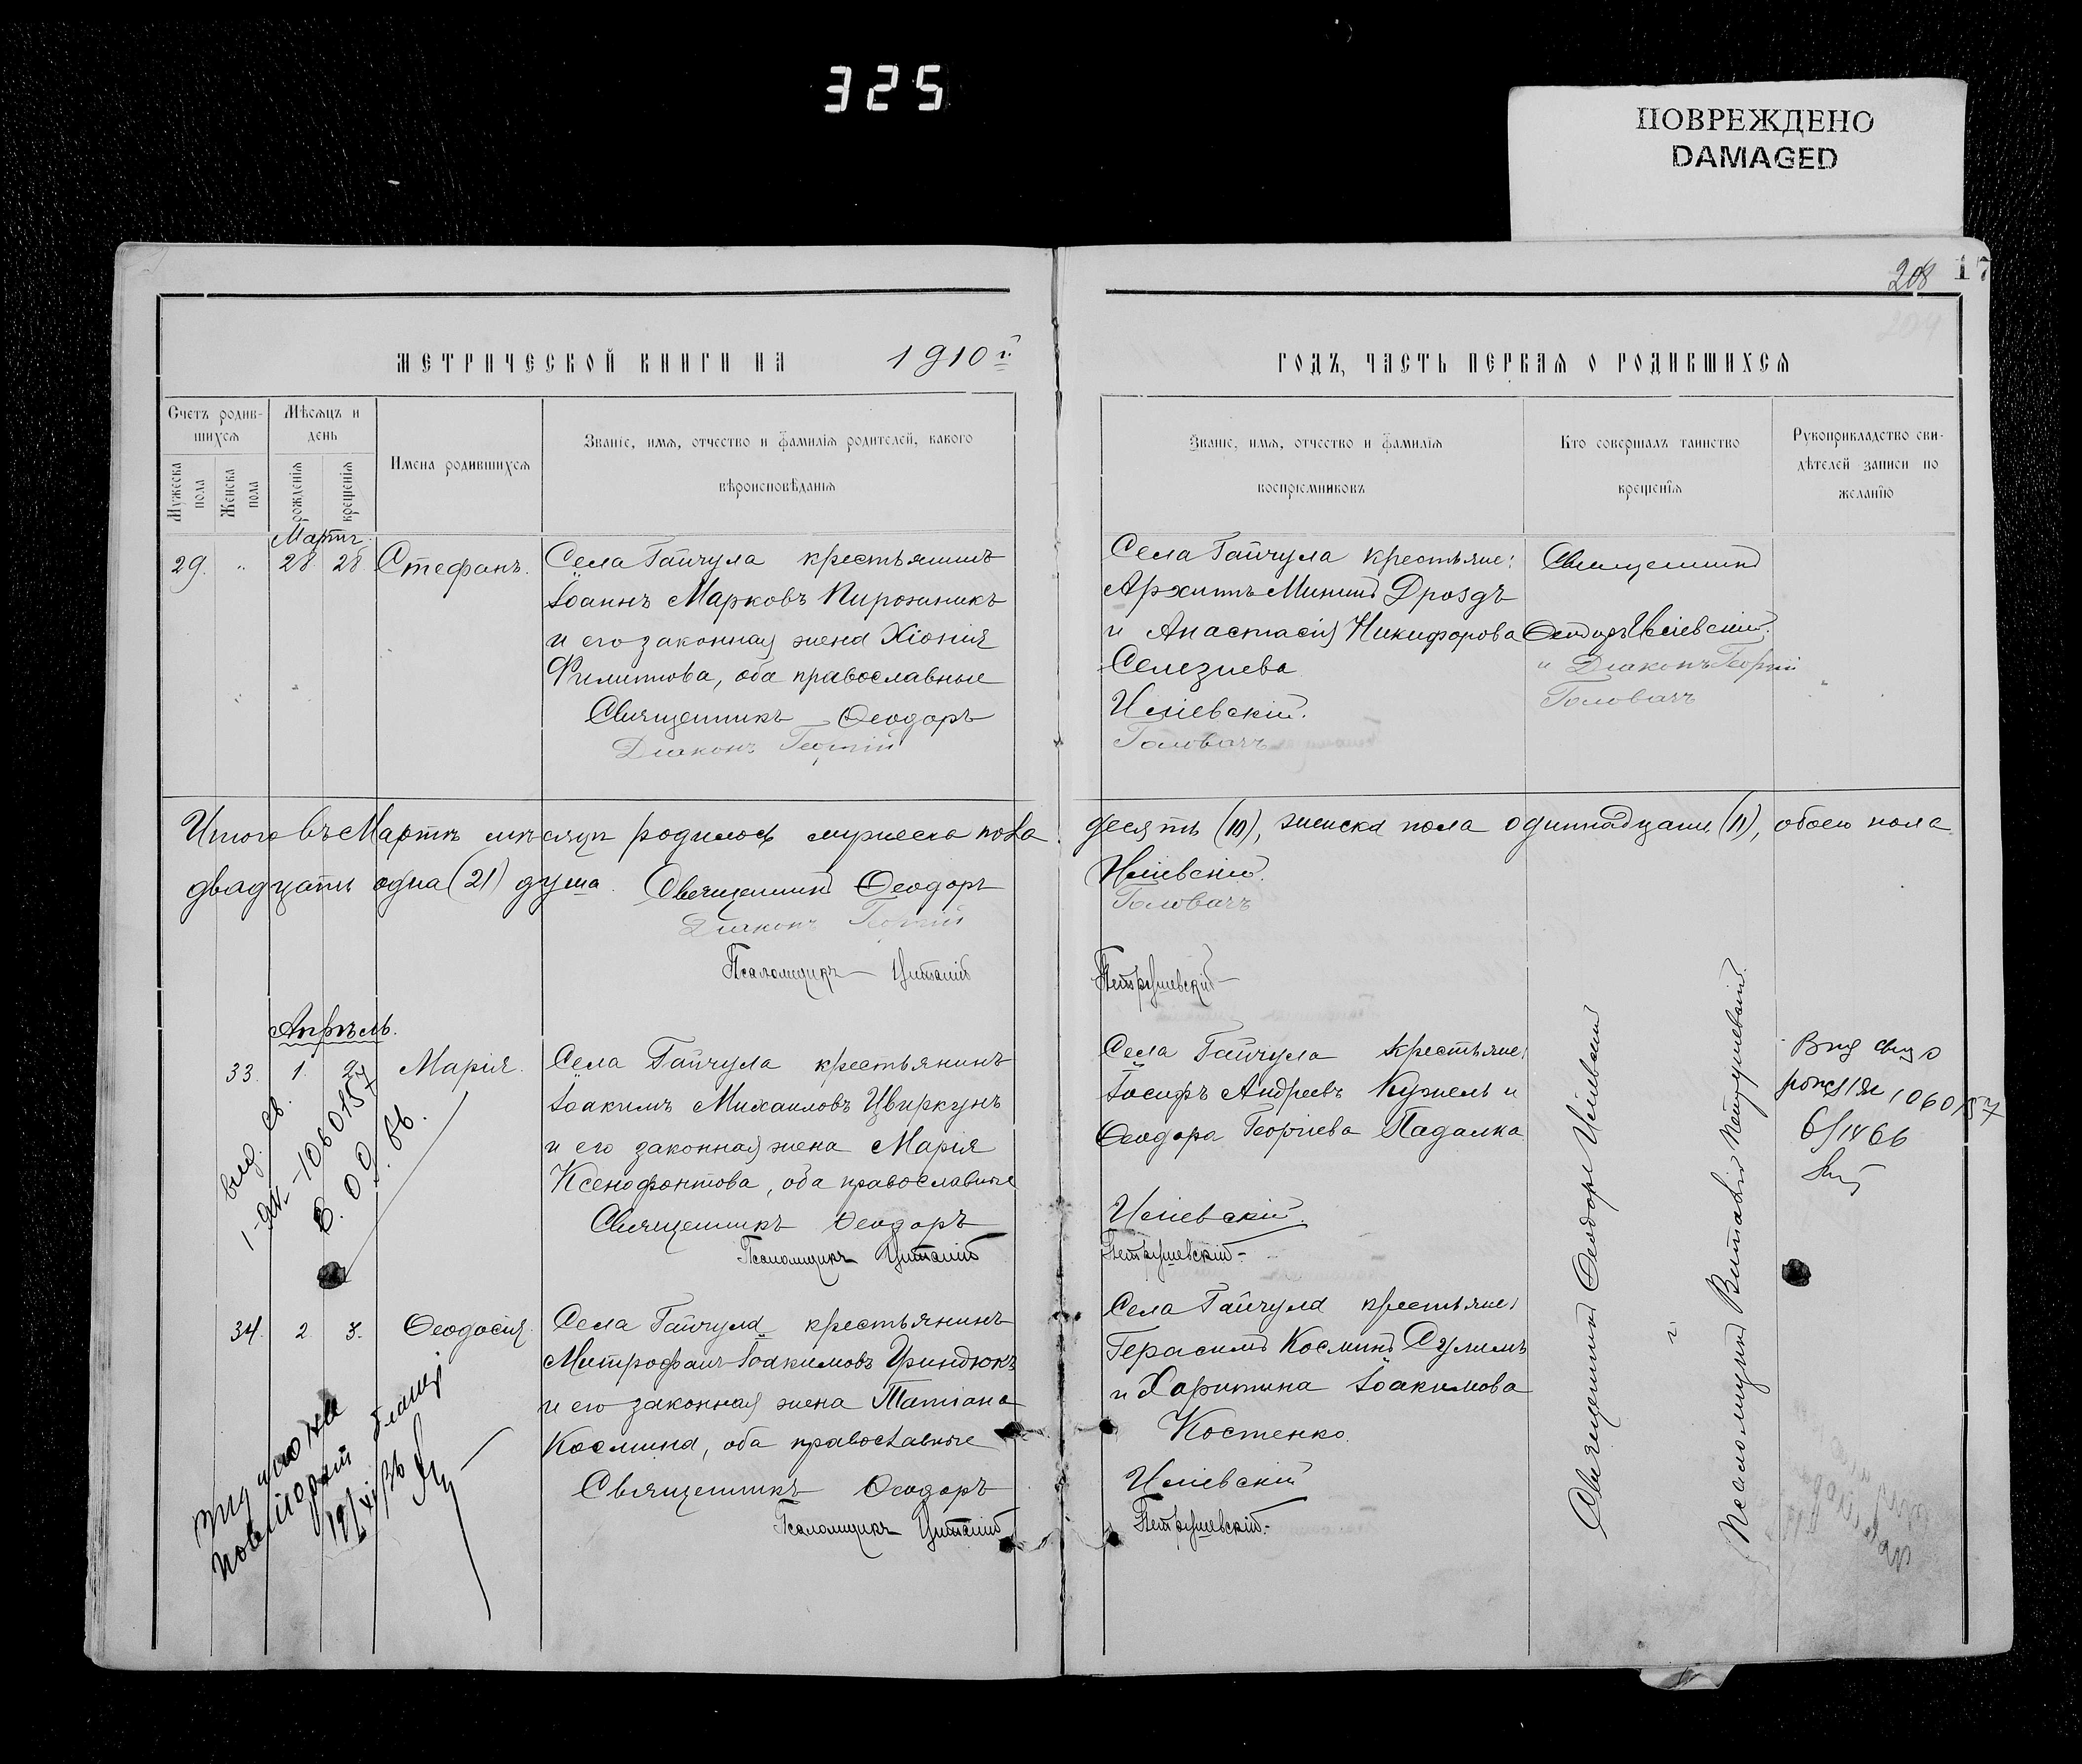 325
ПОВРЕЖДЕНО
DAMAGED
208 17
МЕТРИЧЕСКОЙ КНИГИ НА 1910 г.
ГОДЪ, ЧАСТЬ ПЕРВАЯ О РОДИВШИХСЯ
Счетъ родив-
шихся
Мужеска пола
Женска пола
Мѣсяцъ и
день
рожденія
крещенія
Имена родившихся
Званіе, имя, отчество и фамилія родителей, какого
вѣроисповѣданія
Званіе, имя, отчество и фамилія
воспріемниковъ
Кто совершалъ таинство
крещенія
Рукоприкладство сви-
дѣтелей записи по
желанію
Мартъ.
29. „ 28 28 Стефанъ.
Села Гайчула крестьянинъ
Іоаннъ Марковъ Пирожникъ
и его законная жена Хіонія
Филиппова, оба православные
Священникъ Ѳеодоръ
Діаконъ Георгій
Села Гайчула крестьяне:
Архипъ Мининъ Дроздъ
и Анастасія Никифорова
Селезнева
Иліевскій.
Головачъ
Священникъ
Ѳеодоръ Иліевскій.
и Діаконъ Георгій
Головачъ
Итого въ Мартѣ мѣсяцѣ родилось мужеска пола десять (10), женска пола одиннадцать (11), обоего пола
двадцать одна (21) душа. Священникъ Ѳеодоръ Иліевскій.
Діаконъ Георгій Головачъ
Псаломщикъ Виталій Петрушевскій
Апрѣль.
33. 1. 2. Марія.
Села Гайчула крестьянинъ
Іоакимъ Михаиловъ Цвиркунъ
и его законная жена Марія
Ксенофонтова, оба православные
Священникъ Ѳеодоръ
Псаломщикъ Виталій
Села Гайчула крестьяне:
Іосифъ Андреевъ Кужель и
Ѳеодора Георгіева Падалка
Иліевскій
Петрушевскій
1060157
1060157
34. 2. 3. Ѳеодосія.
Села Гайчула крестьянинъ
Митрофанъ Іоакимовъ Гриндюкъ
и его законная жена Татіана
Космина, оба православные
Священникъ Ѳеодоръ
Псаломщикъ Виталій
Села Гайчула крестьяне:
Герасимъ Косминъ Сулимъ
и Харитина Іоакимова
Костенко.
Иліевскій
Петрушевскій
Священникъ Ѳеодоръ Иліевскій
и
Псаломщикъ Виталій Петрушевскій.